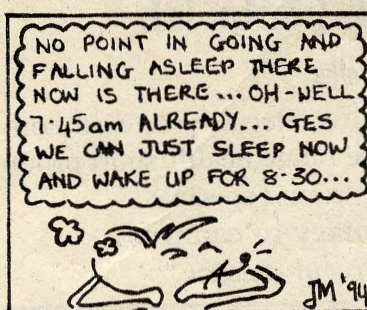 NO POINT IN GOING AND
FALLING ASLEEP THERE
NOW IS THERE... OH-WELL
7·45am ALREADY... GES
WE CAN JUST SLEEP NOW
AND WAKE UP FOR 8·30...
JM '94